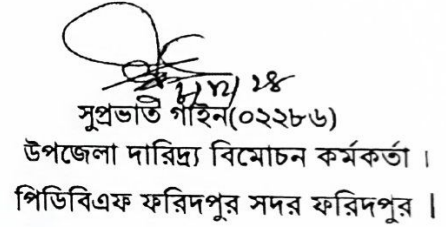 সুপ্রভাত গাইন(০২২৮৬)
উপজেলা দারিদ্র্য বিমোচন কর্মকর্তা ।
পিডিবিএফ ফরিদপুর সদর ফরিদপুর ।